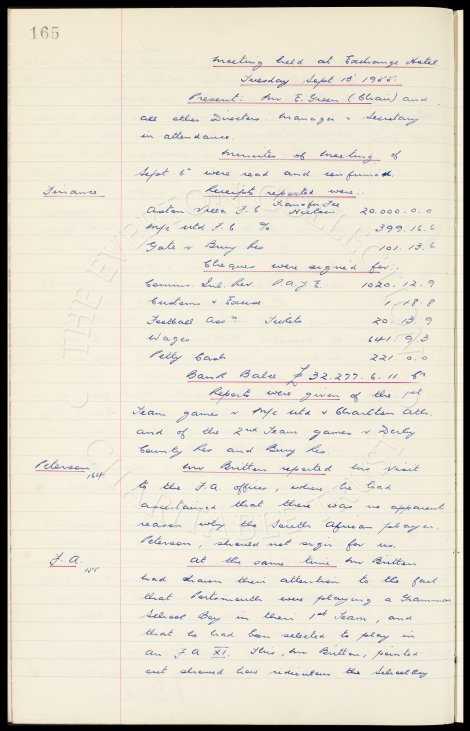 165
Meeting held at Exchange Hotel
Tuesday Sept 13th 1955.
Present: Mr E. Green (Chair) and
all other Directors. Manager & Secretary
in attendance.
Minutes of meeting of
Sept 6th were read and confirmed.
Finance
Receipts reported were:-
Transfer Fee
Aston Villa F.C. 20.000.0.0
M/c Utd F.C. % 399.16.6
Gate v Bury Res 101.13.6
Cheques were signed for:-
Comms. Inl. Rev. P.A.Y.E. 1020.12.9
Customs & Excise 1.18.8
Football Assn Tickets 20.13.9
Wages 641.9.3
Petty Cash 221.0.0
Bank Balce £32.277.6.11 Cr
Reports were given of the 1st
Team games v M/c Utd & Charlton Ath.
and of the 2nd Team games v Derby
County Res and Bury Res.
Peterson 164
Mr Britton reported his visit
to the F.A. offices, where he had
ascertained that there was no apparent
reason why the South African player,
Peterson, should not sign for us.
F.A.
At the same time Mr Britton
had drawn their attention to the fact
that Portsmouth were playing a Grammar
School Boy in their 1st Team, and
that he had been selected to play in
an F.A. XI. This, Mr Britton, pointed
out showed how rediculous the Schoolboy
THE EVERTON COLLECTION
CHARITABLE TRUST